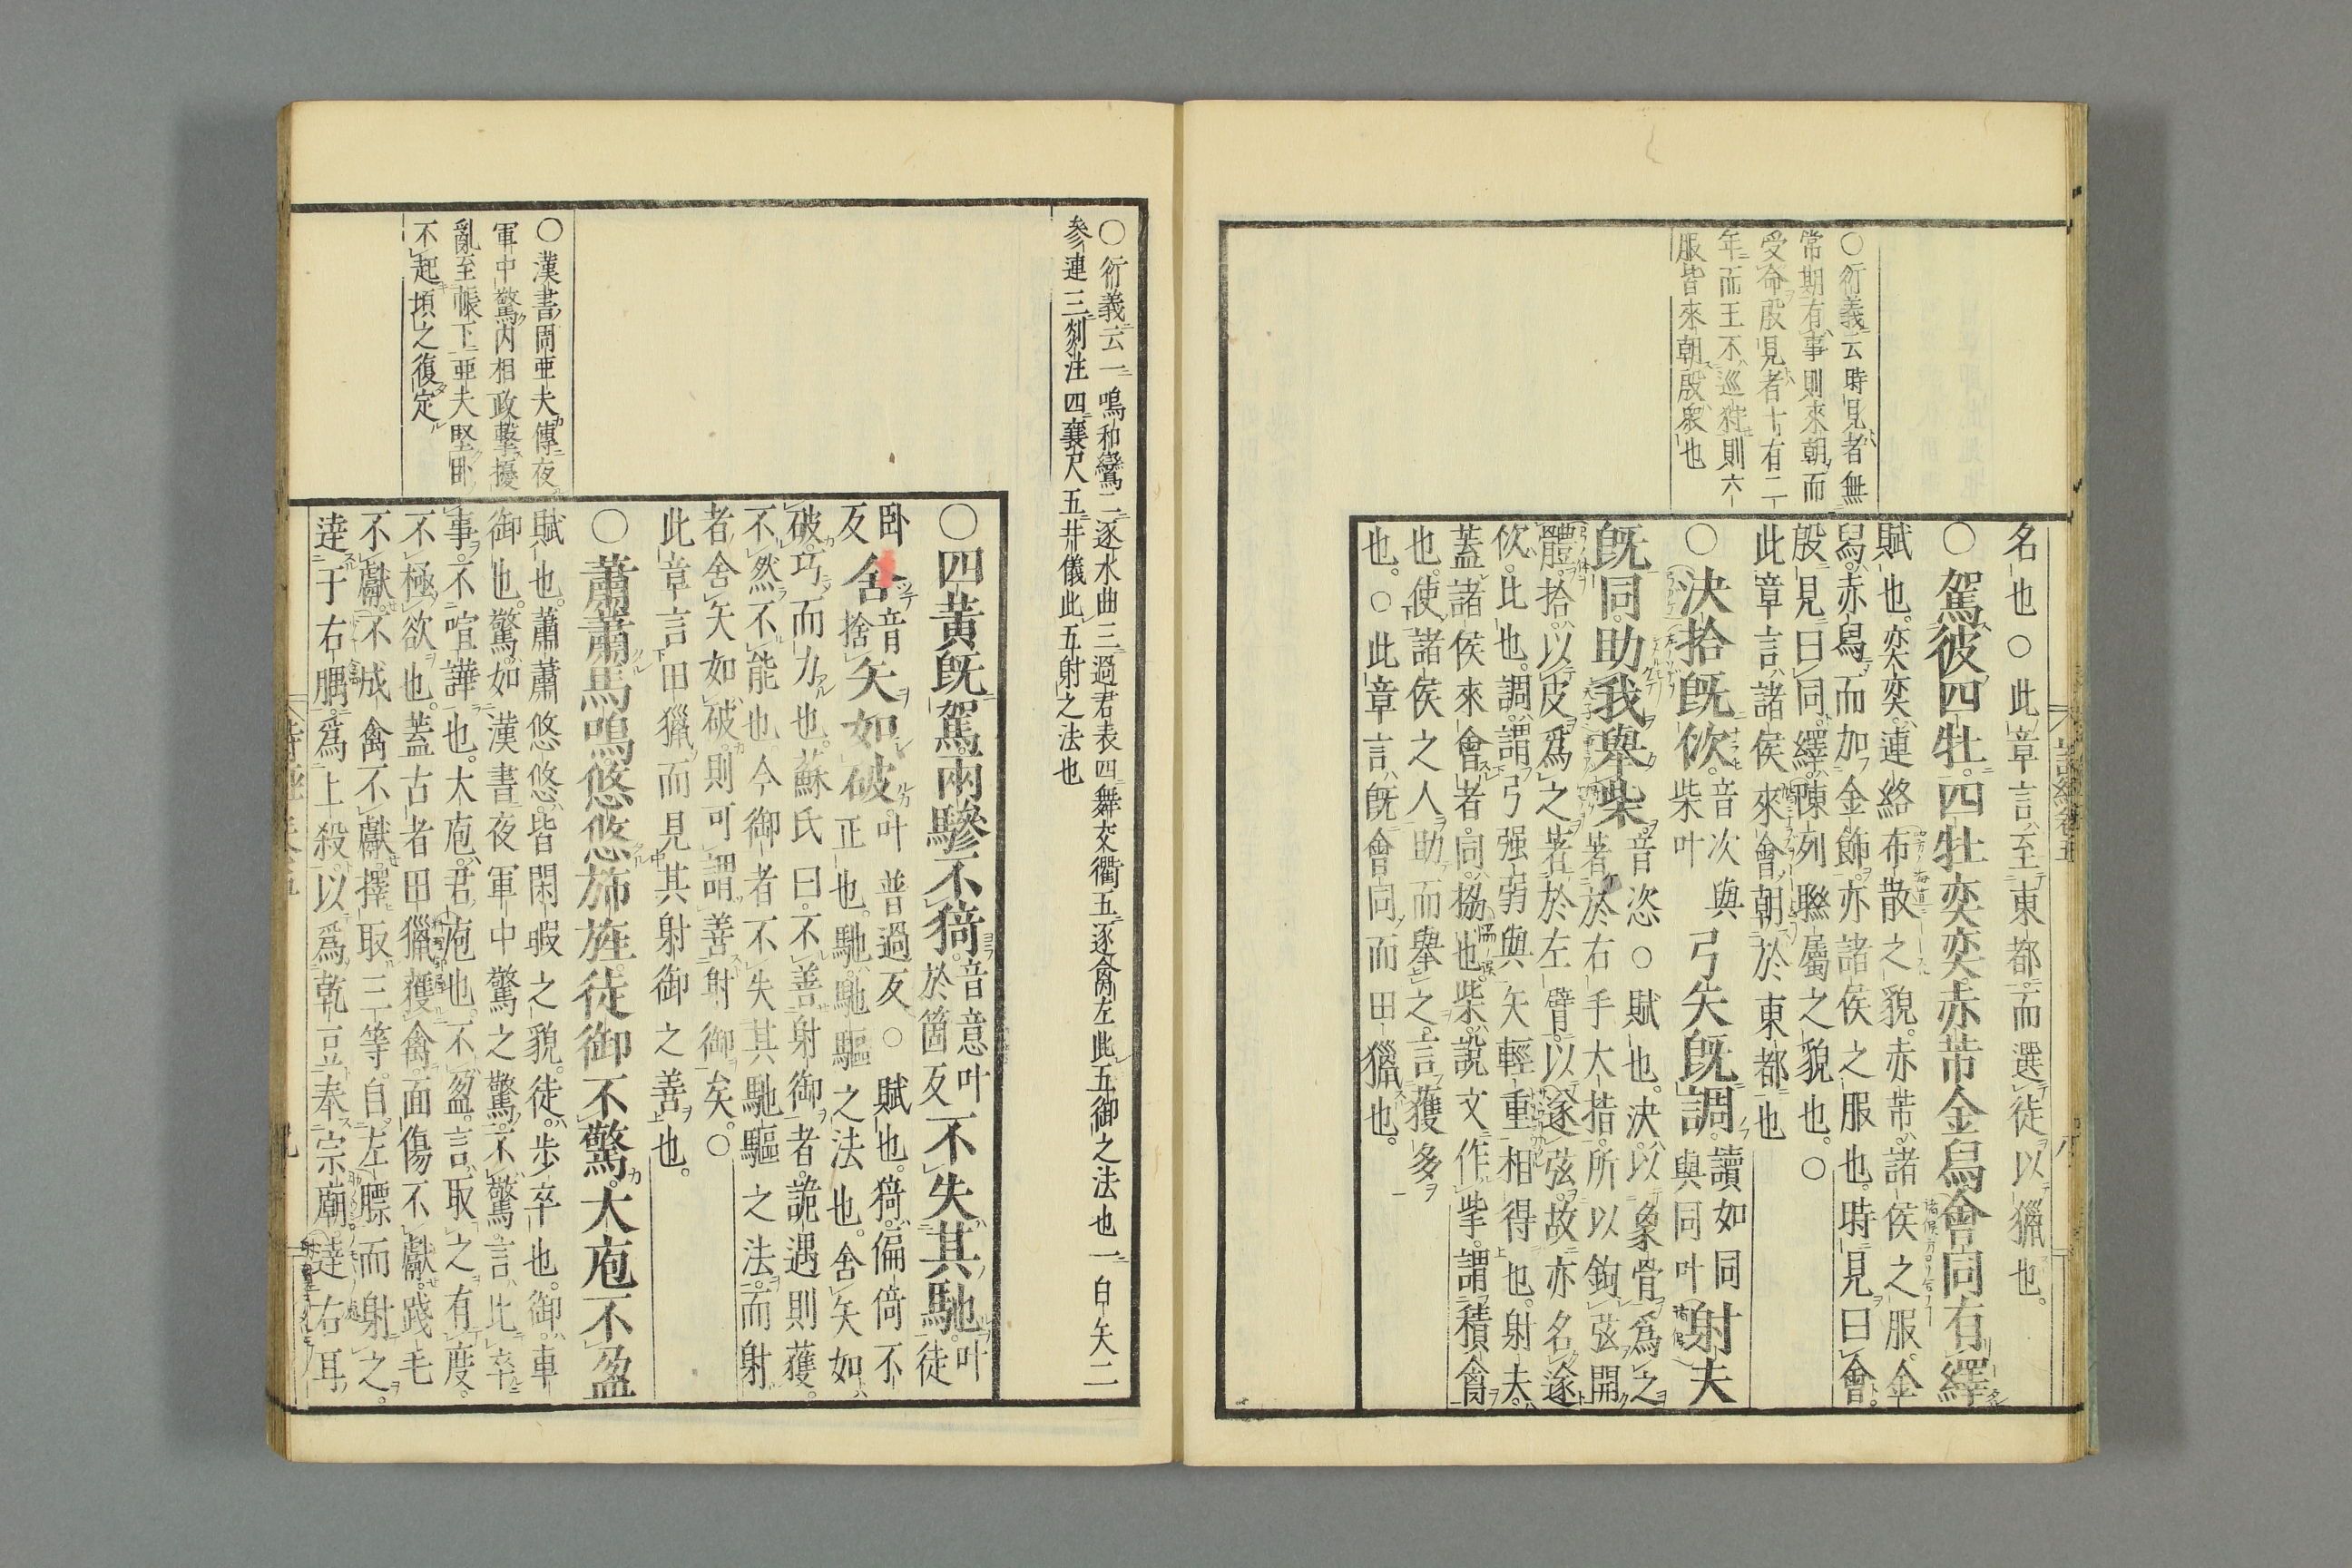 ○衍義云時見者無
常期有事則來朝而
受命殷見者十有二
年而王不巡狩則六
服皆來朝殷衆也
名也○此章言至東都而選徒以獵也
○駕彼四牡四牡奕奕赤芾金舃會同有繹
賦也奕奕連絡布散之貌赤芾諸侯之服金
舃赤舃而加金飾亦諸侯之服也時見曰會
殷見曰同繹陳列聯屬之貌也○
此章言諸侯來會朝於東都也
○決拾旣佽音次與柴叶弓矢旣調讀如同與同叶射夫
旣同助我舉柴音恣○賦也決以象骨爲之
著於右手大指所以鉤弦開
體拾以皮爲之著於左臂以遂弦故亦名遂
佽比也調謂弓强弱與矢輕重相得也射夫
蓋諸侯來會者同協也柴說文作㧘謂積禽
也使諸侯之人助而舉之言獲多
也○此章言旣會同而田獵也
詩經卷五
八
○衍義云一鳴和鸞二逐水曲三過君表四舞交衢五逐禽左此五御之法也一白矢二
參連三剡注四襄尺五井儀此五射之法也
○漢書周亞夫傳夜
軍中驚内相攻擊擾
亂至帳下亞夫堅卧
不起頃之復定
○四黃旣駕兩驂不猗音意叶於箇反不失其馳叶徒
卧反舍音捨矢如破叶普過反○賦也猗偏倚不
正也馳馳驅之法也舍矢如
破巧而力也蘇氏曰不善射御者詭遇則獲
不然不能也今御者不失其馳驅之法而射
者舍矢如破則可謂善射御矣○
此章言田獵而見其射御之善也
○蕭蕭馬鳴悠悠旆旌徒御不驚大庖不盈
賦也蕭蕭悠悠皆閑暇之貌徒步卒也御車
御也驚如漢書夜軍中驚之驚不驚言比卒
事不喧譁也大庖君庖也不盈言取之有度
不極欲也蓋古者田獵獲禽面傷不獻踐毛
不獻不成禽不獻擇取三等自左膘而射之
達于右腢爲上殺以爲乾豆奉宗廟達右耳